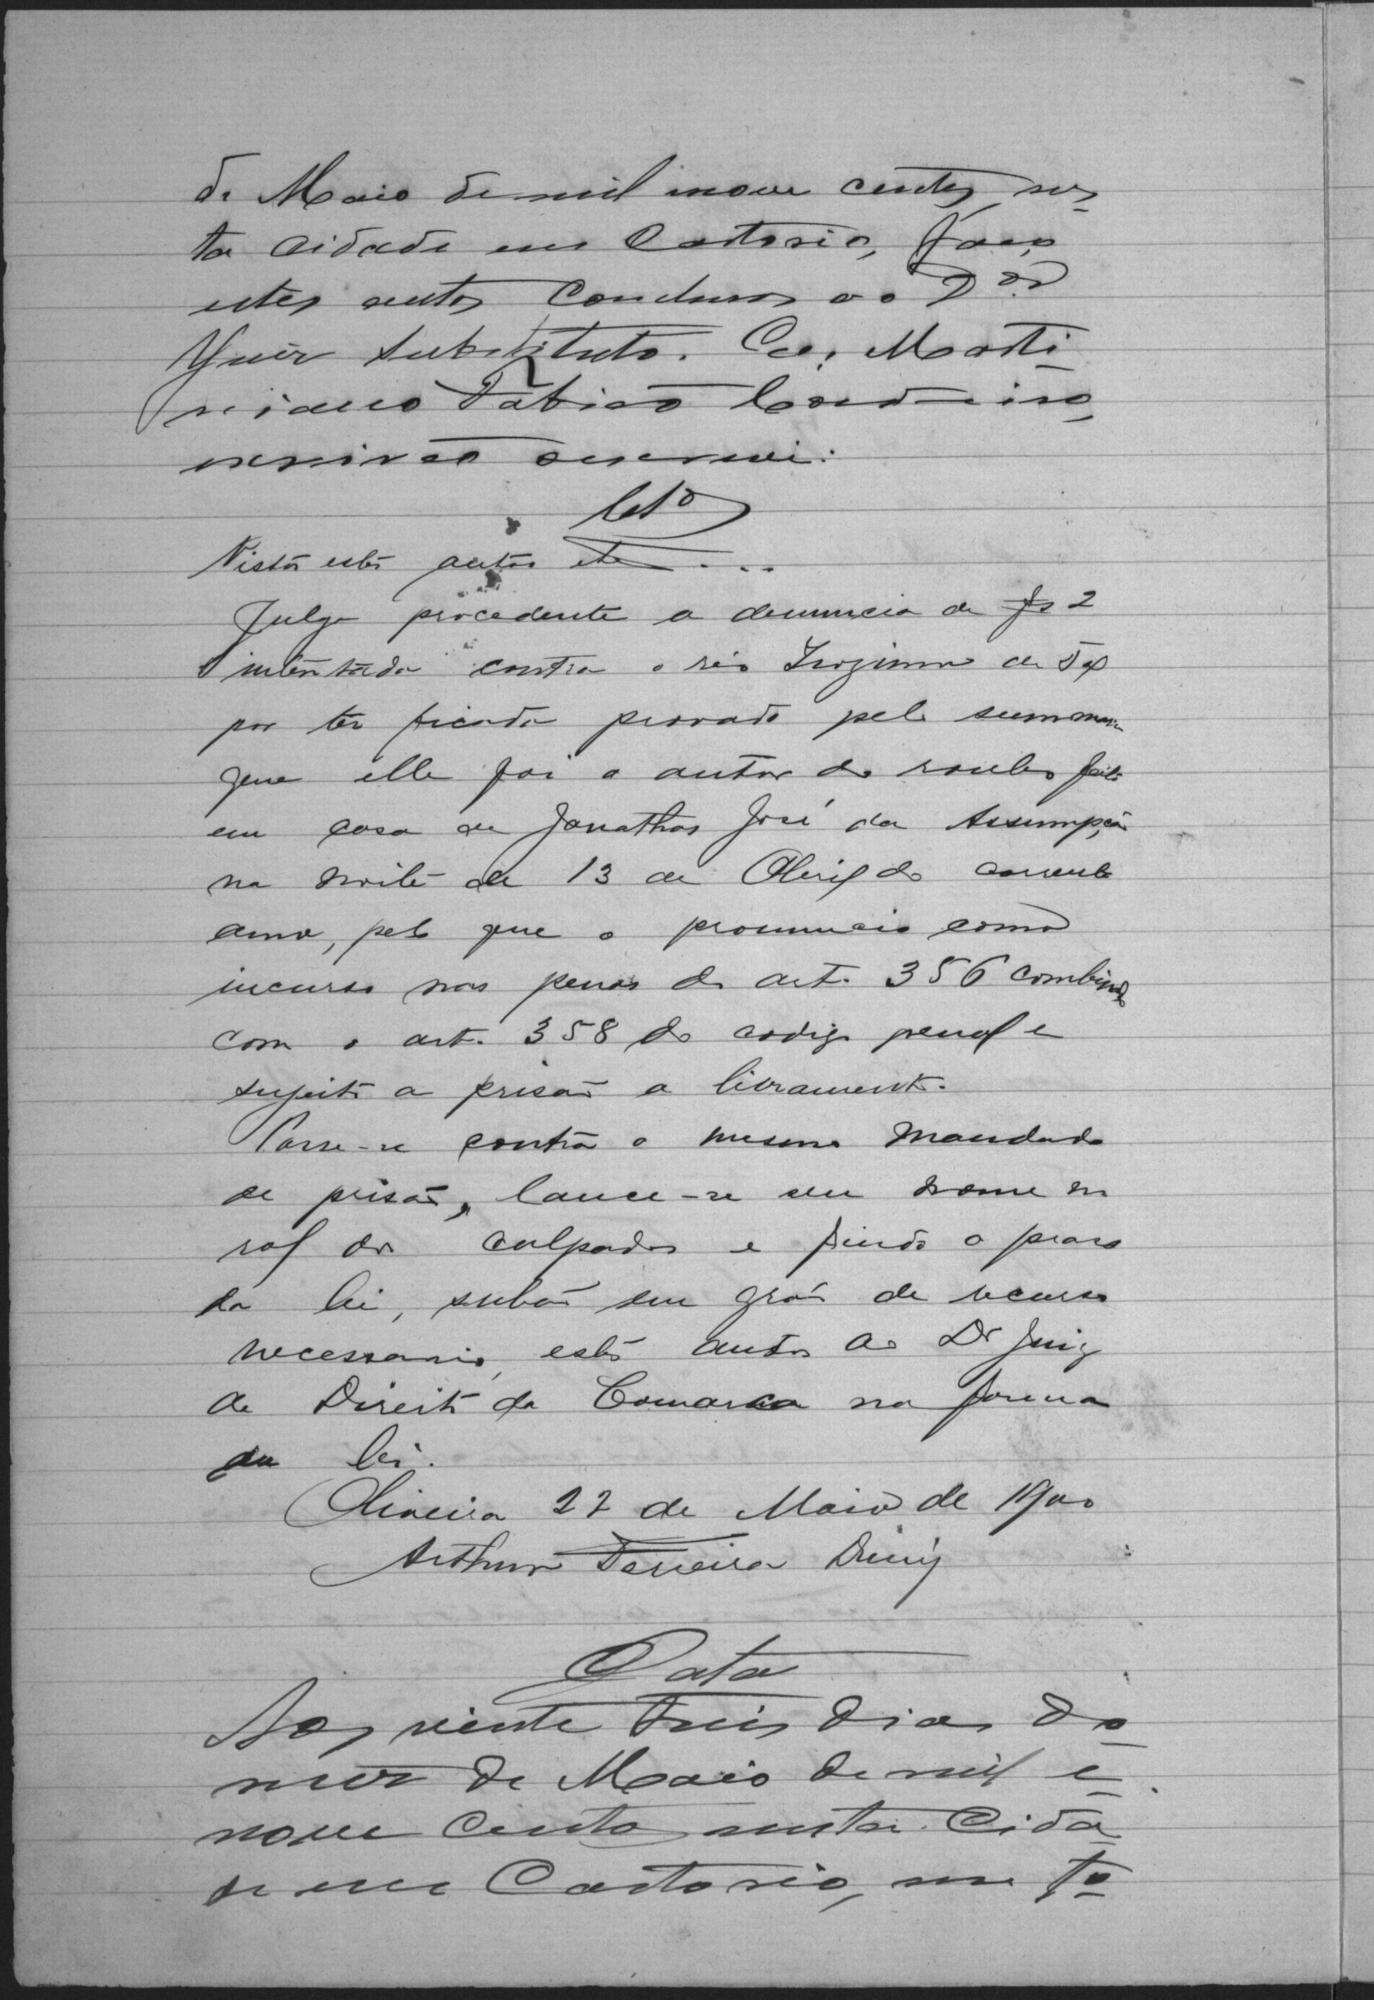 de Maio de mil nove centos nes-
ta cidade em Cartorio, faço
estes autos conclusos ao Dor
Juiz Substituto. Eu, Marti-
niano Fabião Cordeiro,
escrivão escrevi:
Clos
Vistos estes autos etc...
Julgo procedente a denuncia de fs 2
intentada contra o réo de tal
por ter ficado provado pelo summario
que elle foi o autor do roubo feito
em casa de Jonathas José da Assumpção
na noite de 13 de Abril do corrente
anno, pelo que o pronuncio como
incurso nas penas do art. 356 combinado
com o art. 358 do codigo penal e
sujeito a prisão e livramento.
Passe-se contra o mesmo mandado
de prisão, lance-se seu nome no
rol dos culpados e findo o praso
da lei, subão em gráo de recurso
necessario, estes autos ao Dr Juiz
de Direito da Comarca na forma
da lei.
Oliveira 22 de Maio de 1900
Arthur Ferreira Diniz
Data
Aos vinte treis dias do
mez de Maio de mil e
nove centos nesta Cida-
de em Cartorio, me fo-